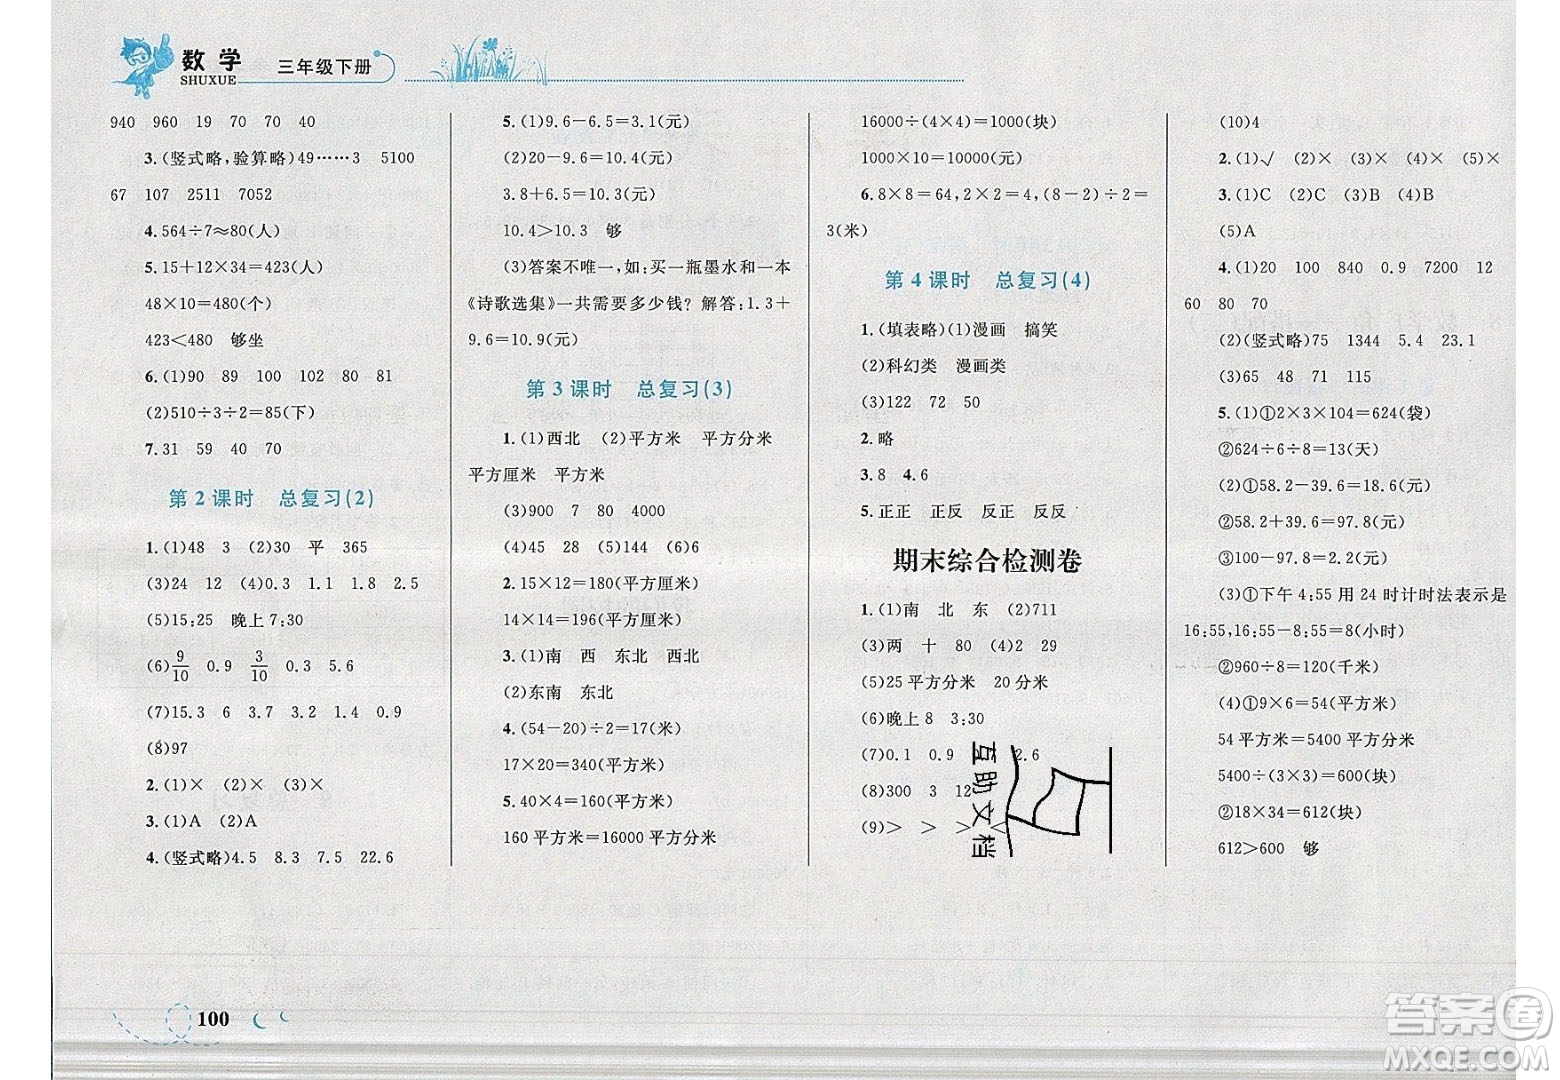 数学
SHUXUE
三年级下册
940 960 19 70 70 40
3.(竖式略,验算略)49……3 5100
67 107 2511 7052
4.564÷7≈80(人)
5.15+12×34=423(人)
48×10=480(个)
423<480 够坐
6.(1)90 89 100 102 80 81
(2)510÷3÷2=85(下)
7.31 59 40 70
第2课时 总复习(2)
1.(1)48 3 (2)30 平 365
(3)24 12 (4)0.3 1.1 1.8 2.5
(5)15:25 晚上7:30
(6)9/10 0.9 3/10 0.3 5.6
(7)15.3 6 3.7 3.2 1.4 0.9
(8)97
2.(1)× (2)× (3)×
3.(1)A (2)A
4.(竖式略)4.5 8.3 7.5 22.6
5.(1)9.6-6.5=3.1(元)
(2)20-9.6=10.4(元)
3.8+6.5=10.3(元)
10.4>10.3 够
(3)答案不唯一,如:买一瓶墨水和一本
《诗歌选集》一共需要多少钱? 解答:1.3+
9.6=10.9(元)
第3课时 总复习(3)
1.(1)西北 (2)平方米 平方分米
平方厘米 平方米
(3)900 7 80 4000
(4)45 28 (5)144 (6)6
2.15×12=180(平方厘米)
14×14=196(平方厘米)
3.(1)南 西 东北 西北
(2)东南 东北
4.(54-20)÷2=17(米)
17×20=340(平方米)
5.40×4=160(平方米)
160平方米=16000平方分米
16000÷(4×4)=1000(块)
1000×10=10000(元)
6.8×8=64,2×2=4,(8-2)÷2=
3(米)
第4课时 总复习(4)
1.(填表略)(1)漫画 搞笑
(2)科幻类 漫画类
(3)122 72 50
2.略
3.8 4.6
5.正正 正反 反正 反反
期末综合检测卷
1.(1)南 北 东 (2)711
(3)两 十 80 (4)2 29
(5)25平方分米 20分米
(6)晚上8 3:30
(7)0.1 0.9 2.6
(8)300 3 12
(9)> > > <
互助文档
(10)4
2.(1)√ (2)× (3)× (4)× (5)×
3.(1)C (2)C (3)B (4)B
(5)A
4.(1)20 100 840 0.9 7200 12
60 80 70
(2)(竖式略)75 1344 5.4 23.1
(3)65 48 71 115
5.(1)①2×3×104=624(袋)
②624÷6÷8=13(天)
(2)①58.2-39.6=18.6(元)
②58.2+39.6=97.8(元)
③100-97.8=2.2(元)
(3)①下午4:55用24时计时法表示是
16:55,16:55-8:55=8(小时)
②960÷8=120(千米)
(4)①9×6=54(平方米)
54平方米=5400平方分米
5400÷(3×3)=600(块)
②18×34=612(块)
612>600 够
100
答案圈
MXQE.COM